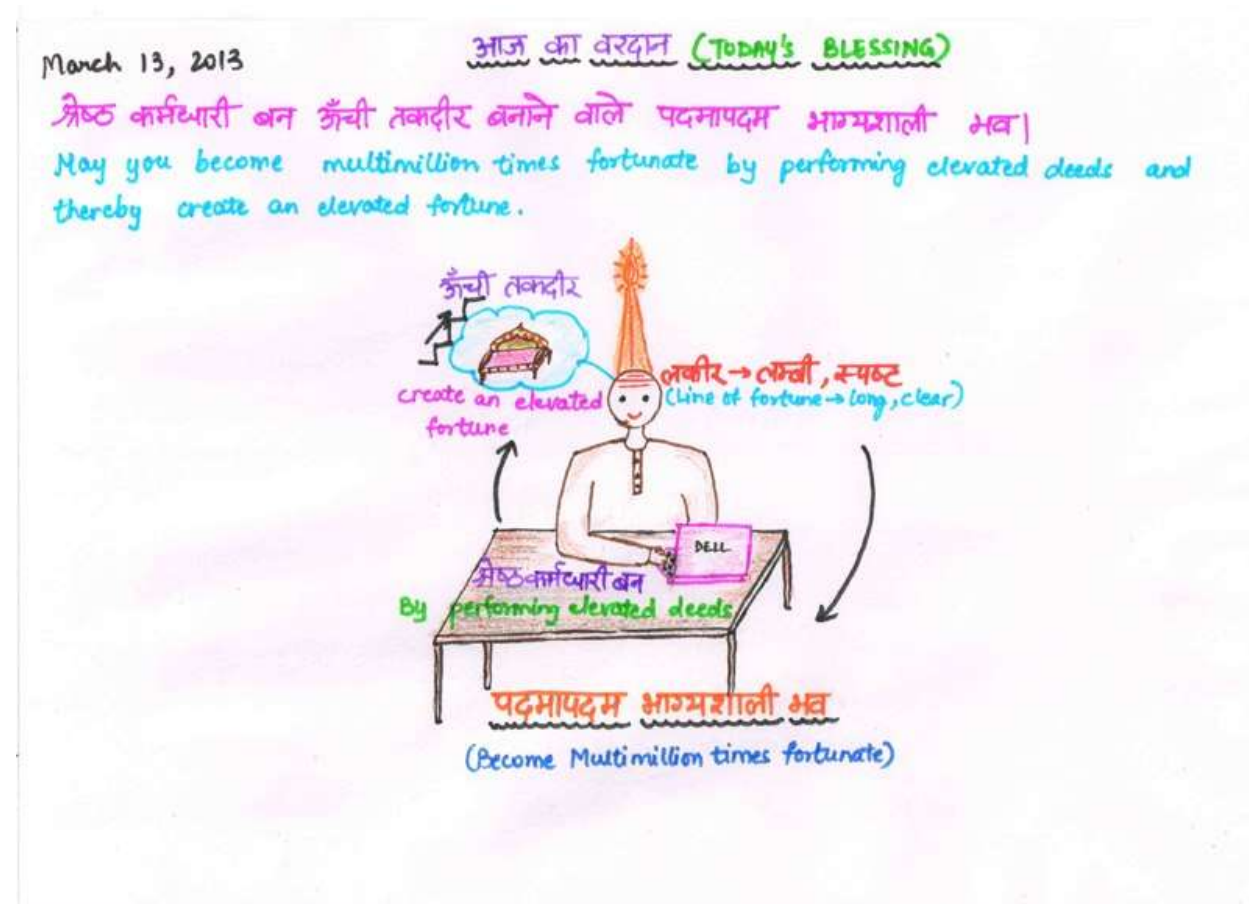 March 13, 2013
आज का वरदान (TODAY'S BLESSING)
श्रेष्ठ कर्मधारी बन ऊँची तकदीर बनाने वाले पदमापदम भाग्यशाली भव।
May you become multimillion times fortunate by performing elevated deeds and
thereby create an elevated fortune.
ऊँची तकदीर
create an elevated
fortune
लकीर → लम्बी, स्पष्ट
(Line of fortune → long, clear)
DELL
श्रेष्ठ कर्मधारी बन
By performing elevated deeds
पदमापदम भाग्यशाली भव
(Become Multimillion times fortunate)